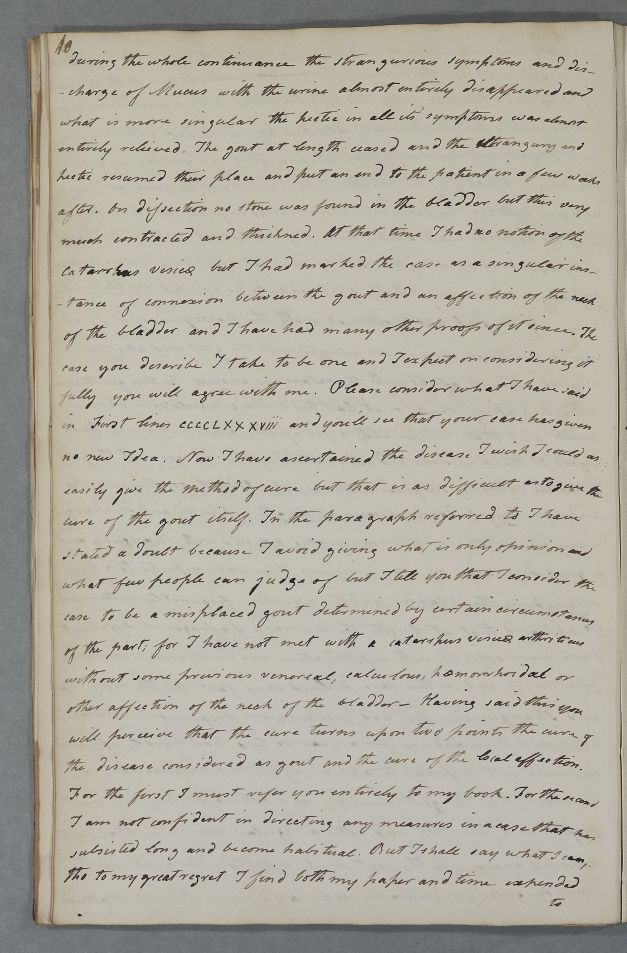 40
during the whole continuance the strangurious symptoms and dis-
-charge of Mucus with the urine almost entirely disappeared and
what is more singular the hectic in all its symptoms was almost
entirely relieved. The gout at length ceased and the strangury and
hectic resumed their place and put an end to the patient in a few weeks
after. On dissection no stone was found in the bladder but this very
much contracted and thickned. At that time I had no notion of the
Catarrhus vesicæ but I had marked the case as a singular ins-
-tance of connexion between the gout and an affection of the neck
of the bladder and I have had many other proofs of it since. The
case you describe I take to be one and I expect on considering it
fully you will agree with me. Please consider what I have said
in First lines CCCCLXXXVIII and you'll see that your case has given
no new Idea. Now I have ascertained the disease I wish I could as
easily give the method of cure but that is as difficult as to give the
cure of the gout itself. In the paragraph referred to I have
stated a doubt because I avoid giving what is only opinion and
what few people can judge of but I tell you that I consider the
case to be a misplaced gout determined by certain circumstances
of the part; for I have not met with a catarrhus vesicæ arthriticus
without some previous venereal, calculous, hæmorrhoidal or
other affection of the neck of the bladder– Having said this you
will perceive that the cure turns upon two points the cure of
the disease considered as gout and the cure of the local affection.
For the first I must refer you entirely to my book. For the second
I am not confident in directing any measures in a case that has
subsisted long and become habitual. But I shall say what I can,
tho to my great regret I find both my paper and time expended
to